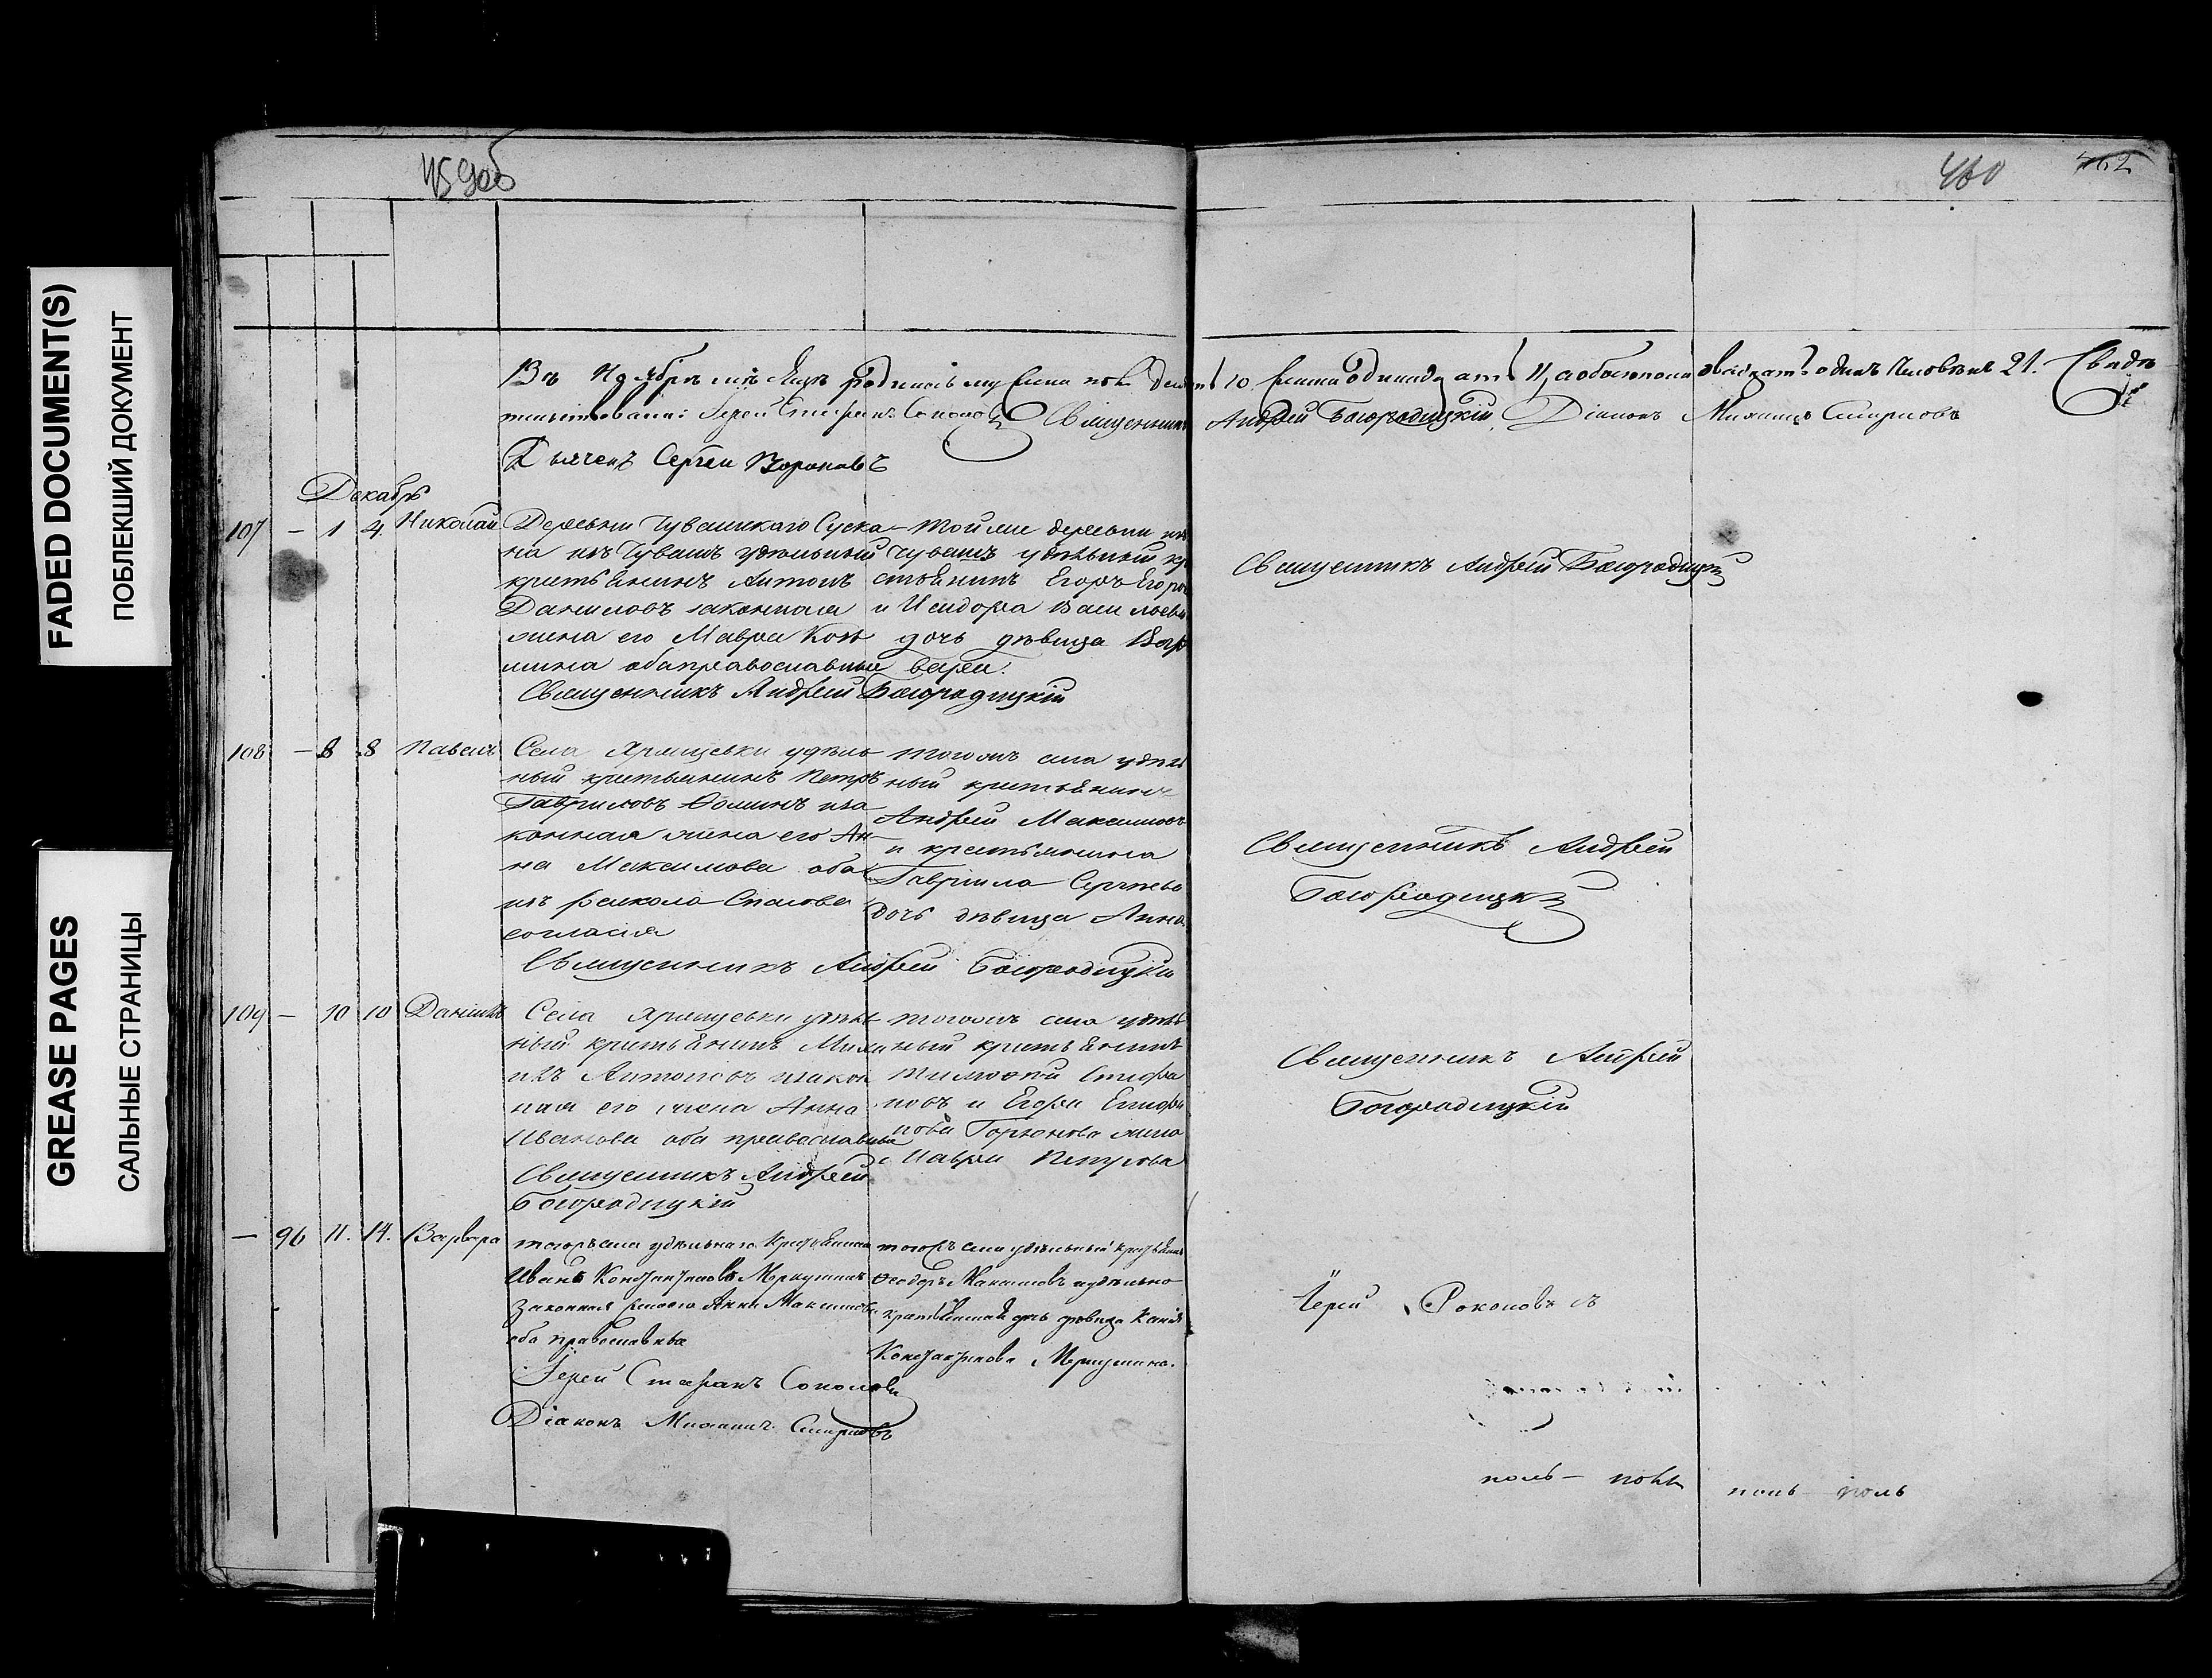 FADED DOCUMENT(S)
ПОБЛЕКШИЙ ДОКУМЕНТ
GREASE PAGES
САЛЬНЫЕ СТРАНИЦЫ
459об
460 462
Въ Ноябрѣ родилось муж пола десять 10 одиннадцать 11, а обоего пола двадцать одинъ человѣкъ 21. Свидѣ
тельствовали: Іерей Стефанъ Соколовъ Священникъ Андрей Богородицкій Діаконъ Михаилъ Смирновъ
Дьячекъ Сергей Вороновъ
Декабрь
107 — 1 4 Николай
Деревни Чувашскаго Суска
на изъ Чувашъ удѣльный
крестьянинъ Антонъ
Даниловъ законная
жена его Мавра Козь
мина оба православные
Священникъ Андрей Богородицкій
Той же деревни
Чувашъ удѣльный кр
стьянинъ Егоръ Егоро
и Исидора Васильева
дочь дѣвица Вар
вара.
Священникъ Андрей Богородицкій
108 — 8 8 Павелъ
Села удѣль
ный крестьянинъ Петръ
Гавриловъ Ѳоминъ и за
конная жена его Ан
на Максимова оба
изъ раскола Спасова
согласія
Священникъ Андрей Богородицкій
Тогожъ села удѣль
ный крестьянинъ
Андрей Максимовъ
и крестьянина
Гавріила Сергѣева
дочь дѣвица Анна
Священникъ Андрей
Богородицкій
109 — 10 10 Даніилъ
Села удѣль
ный крестьянинъ Миха
илъ Антоновъ и закон
ная его жена Анна
Иванова оба православные
Священникъ Андрей
Богородицкій
Тогожъ села удѣль
ный крестьянинъ
Тимофей Стефа
новъ и Егора
нова Горюнова жена
Мавра Петрова
Священникъ Андрей
Богородицкій
— 96 11. 14. Варвара
тогожъ села удѣльнаго Крестьянина
Иванъ Константиновъ Меркушинъ
Законная его Анна Максимова
оба православные
Іерей Стефанъ Соколовъ
Діаконъ Михаилъ Смирновъ
тогожъ села удѣльный Крестьянинъ
Ѳеодоръ Максимовъ и удѣльно
крестьянская дочь дѣвица
Константинова Меркушина.
Іерей Соколовъ